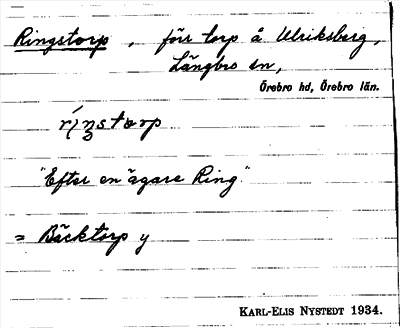 Ringstorp, förr torp å Ulriksberg,
Längbro sn,
Örebro hd, Örebro län.
"Efter en ägare Ring"
= Bäcktorp y
KARL-ELIS NYSTEDT 1934.